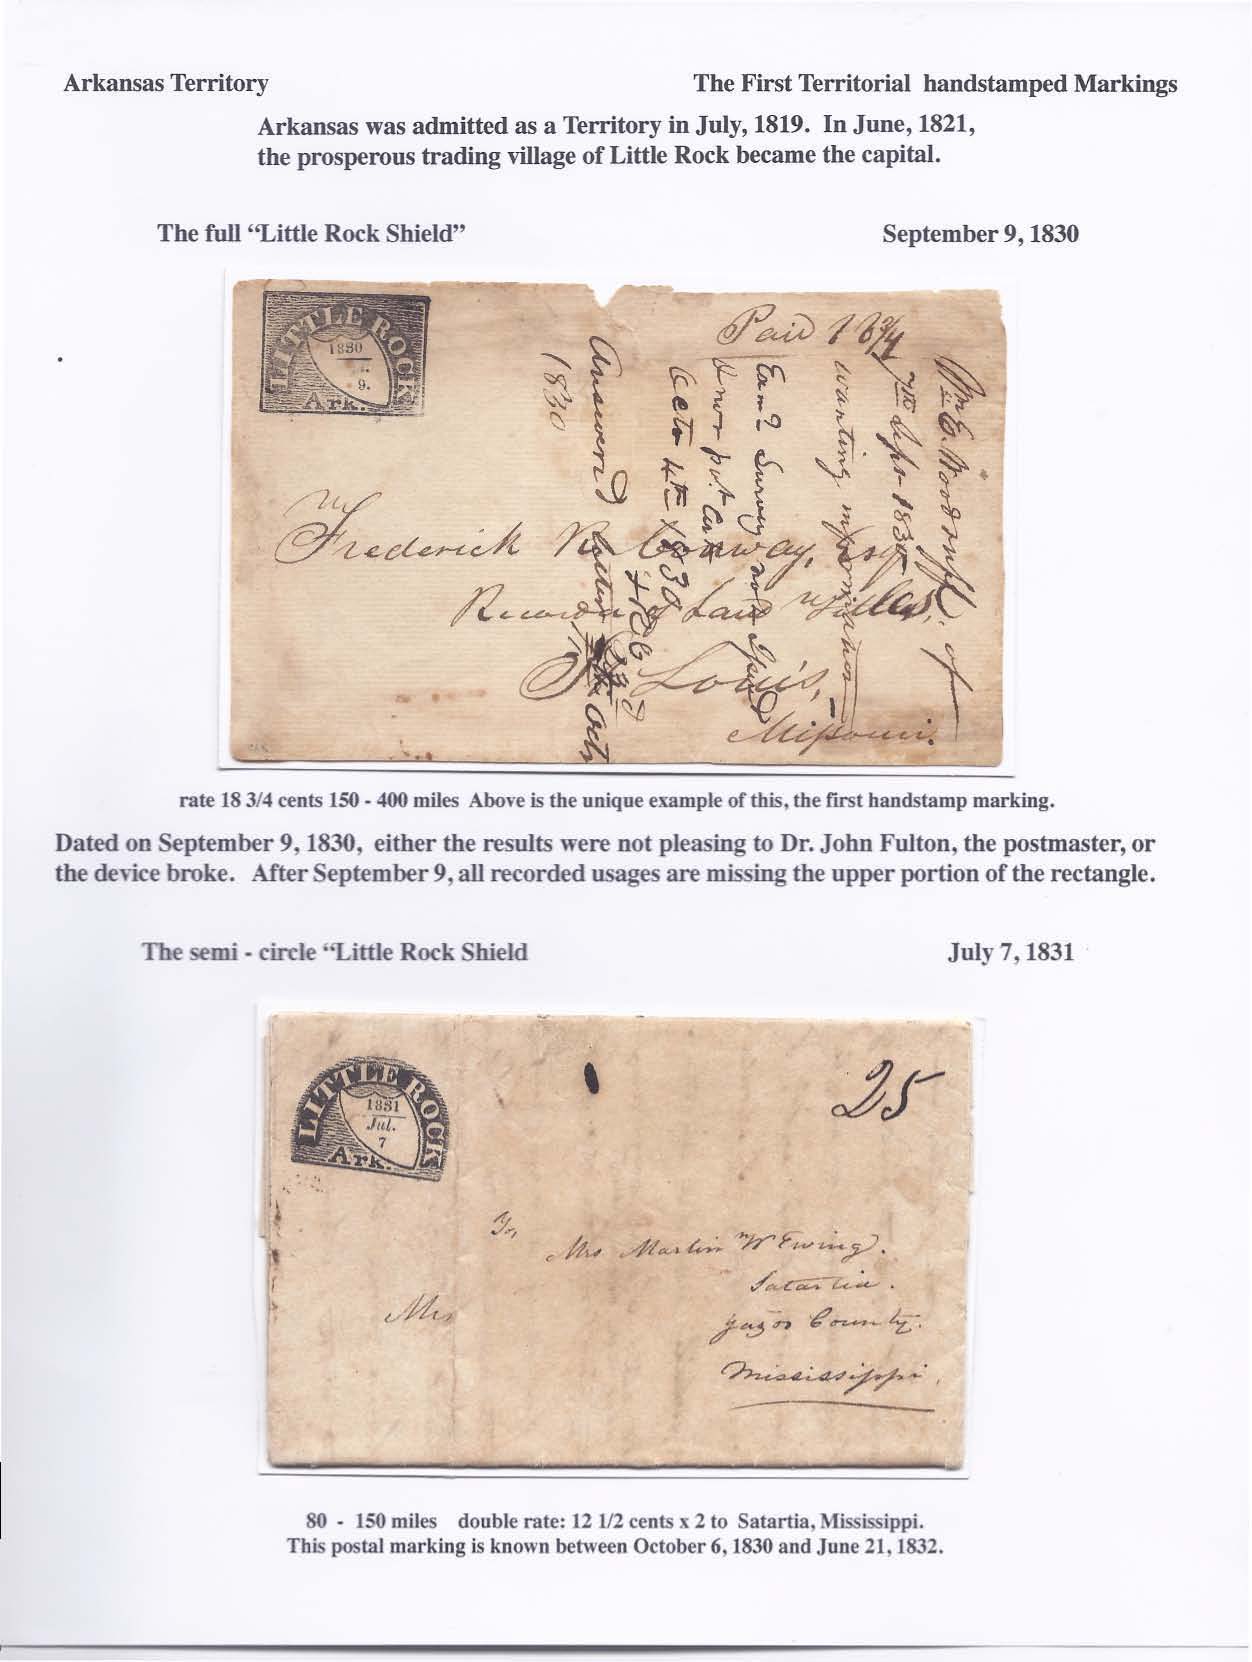 Arkansas Territory The First Territorial handstamped Markings
Arkansas was admitted as a Territory in July, 1819. In June, 1821,
the prosperous trading village of Little Rock became the capital.
The full “Little Rock Shield” September 9, 1830
LITTLE ROCK
1830
9.
Ark.
Paid
Wm E. Woodruff of
7th Sept 1830
wanting information
Octo 4th 1830
Answerd letter
Octr
1830
Frederick R. Conway, esq
Recorder of Land Titles,
St Louis,
Missouri.
rate 18 3/4 cents 150 - 400 miles Above is the unique example of this, the first handstamp marking.
Dated on September 9, 1830, either the results were not pleasing to Dr. John Fulton, the postmaster, or
the device broke. After September 9, all recorded usages are missing the upper portion of the rectangle.
The semi - circle “Little Rock Shield July 7, 1831
LITTLE ROCK
1831
Jul.
7
Ark.
25
To,
Mrs Martin W Ewing.
Satartia.
Yazoo County.
Mississippi.
Mrs
80 - 150 miles double rate: 12 1/2 cents x 2 to Satartia, Mississippi.
This postal marking is known between October 6, 1830 and June 21, 1832.